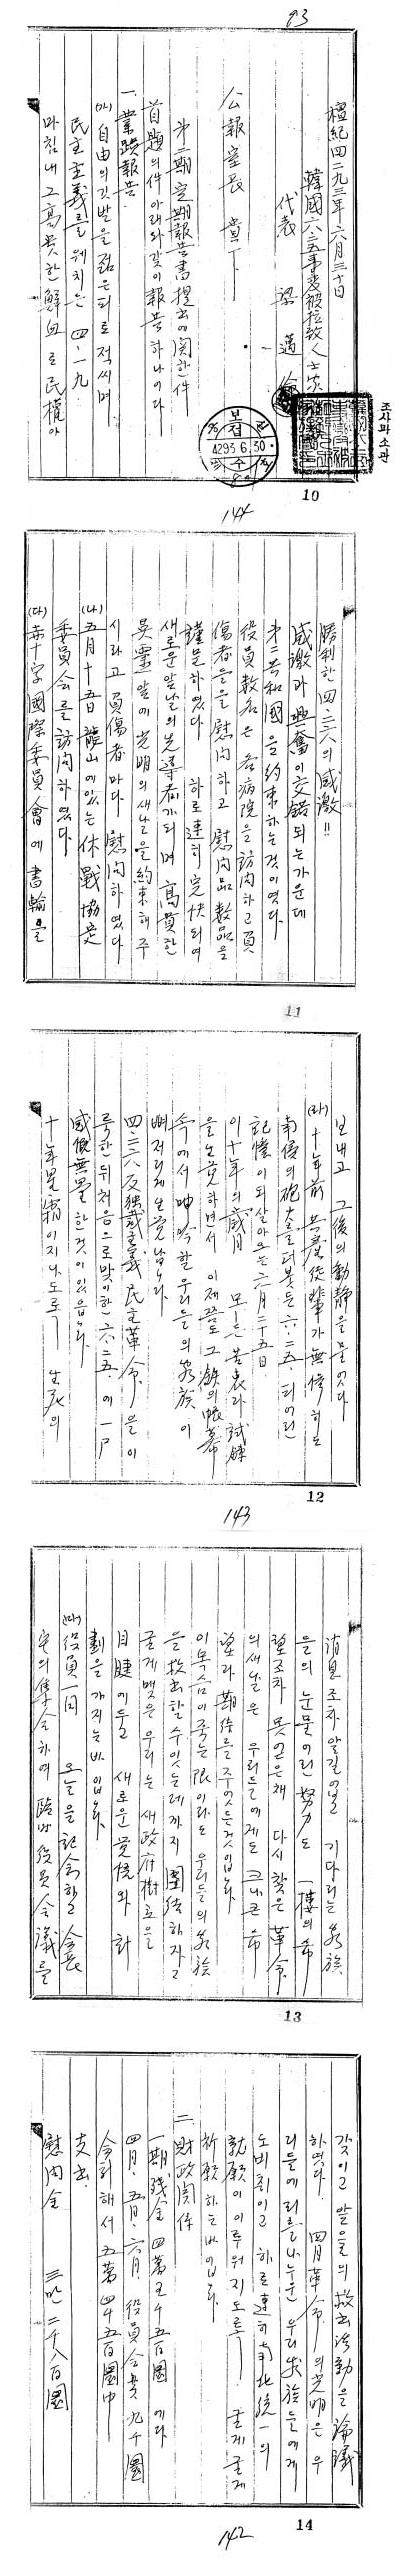 93
檀紀四二九三年 六月三十日
韓國六·二五事變被拉致人士家
代表 梁
公報室長 貴下
第二期定期報告書提出에關한件
首題의件아래와같이報告하나이다
一. 業蹟報告
(가) 自由의깃발을젊은피로적시며
民主主義를웨치든 四·一九
마침내그高貴한鮮血로民權이
조사과소관
접수
4293.6.30
10
144
勝利한四·二六의感激!!
感激과興奮이交錯되는가운데
第二共和國을約束하는것이였다
役員數名은各病院을訪問하고負
傷者들을慰問하고慰問品數品을
謹呈하였다 하로速히完快되여
새로운앞날의先導者가되며高貴한
英靈앞에光明의새날을約束해주
시라고負傷者마다慰問하였다
(나) 五月十五日龍山에있는休戰協定
委員会를訪問하였다
(다) 赤十字國際委員會에書翰을
11
보내고 그後의動静을물었다
(라) 十年前共産徒輩가無慘히도
南侵의砲
記憶이되살아오는六月二十五日
이十年의歲月 모-든苦衷과試鍊
을
속에서呻吟할우리들의家族이
四·二六反獨裁民主革命을이
룩한뒤처음으로맞이한六·二五에
感慨無量한것이있읍니다
十年星霜이지나도록 生死의
12
143
消息조차알길없이 기다리는家族
들의눈물어린努力도一樓의希
望조차못얻은채 다시찾은革命
의새날은우리들에게도크나큰希
望과期待를주었든것입니다
이목숨이죽는限이라도우리들의家族
을救出할수있는데까지團結하자고
굳게맺은우리는새政府樹立을
目睫에둘 새로운覚悟와計
劃을가지는바입니다
(마) 役員一同 오늘을記念할会長
宅의集合하여臨時役員会議를
13
갖이고앞을의救出活動을論議
하였다. 四月革命의光明은우
리들에게
도비취이고하로速히南北統一의
就願이이루워지도록 굳게굳게
祈願하는바입니다
二. 財政関係
一期殘金四萬五千五百圜에다
四月·五月·六月·役員会費九千圜
合計해서五萬四千五百圜中
支出
慰問金 三만二千八百圜
14
142